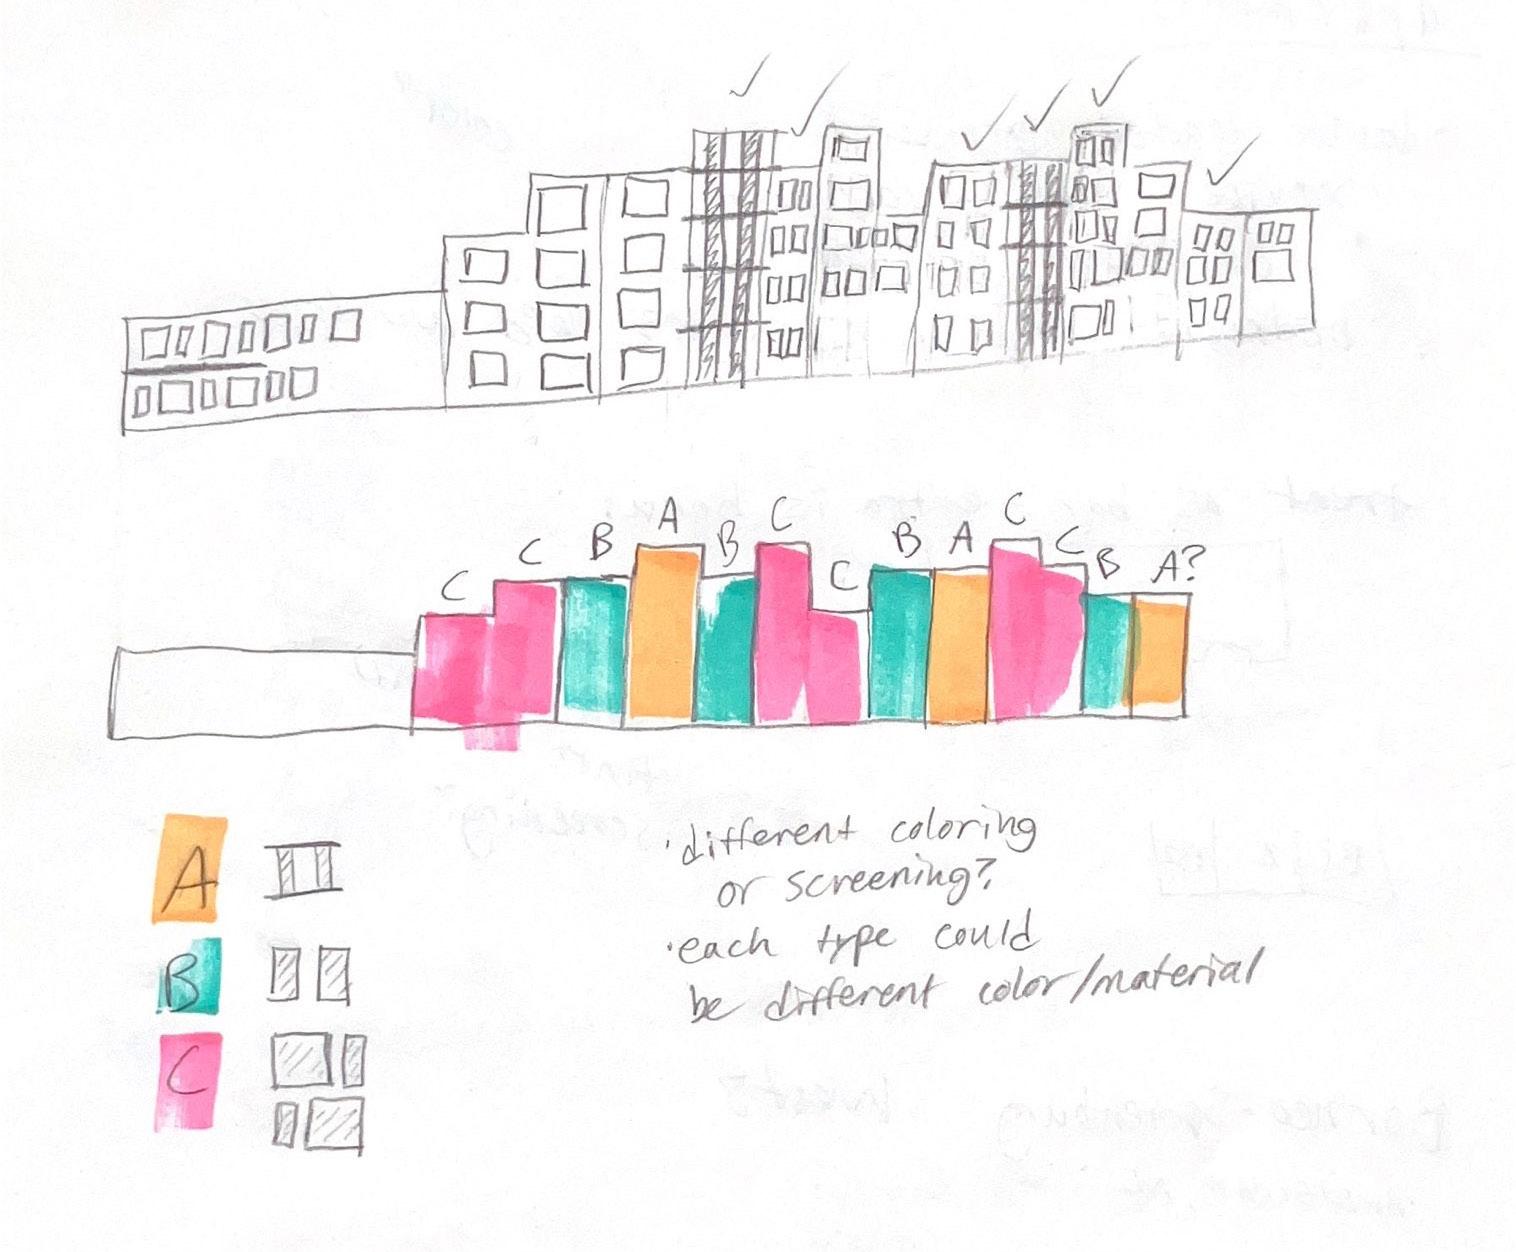 C C B A B C C B A C C B A?
A
B
C
· different coloring
or screening?
· each type could
be different color/material